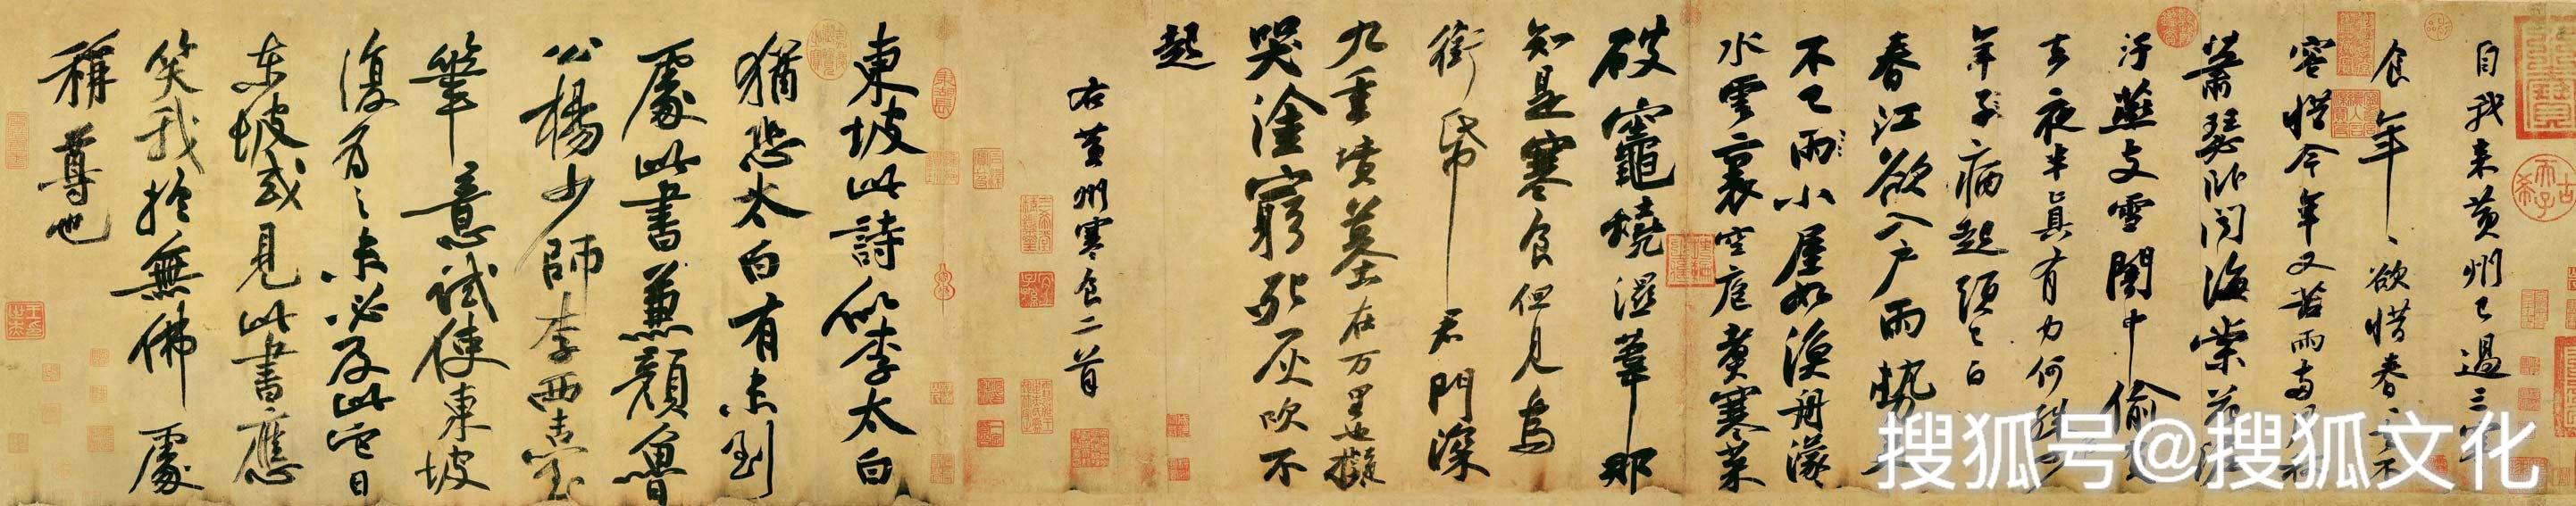 自我来黄州已過三寒
食年、欲惜春、不
容惜今年又苦雨兩月秋
蕭瑟卧聞海棠花泥
汙燕支雪闇中偷負
去夜半真有力何殊少
年子病起頭已白
春江欲入户雨勢来
不已雨小屋如漁舟濛
水雲裏空庖煮寒菜
破竈燒濕葦那
知是寒食但見烏
銜帋君門深
九重墳墓在万里也擬
哭塗窮死灰吹不
起
右黄州寒食二首
東坡此詩似李太白
猶恐太白有未到
處此書兼顏魯
公楊少師李西臺
筆意試使東坡
復為之未必及此它日
東坡或見此書應
笑我於無佛處
稱尊也
搜狐号@搜狐文化